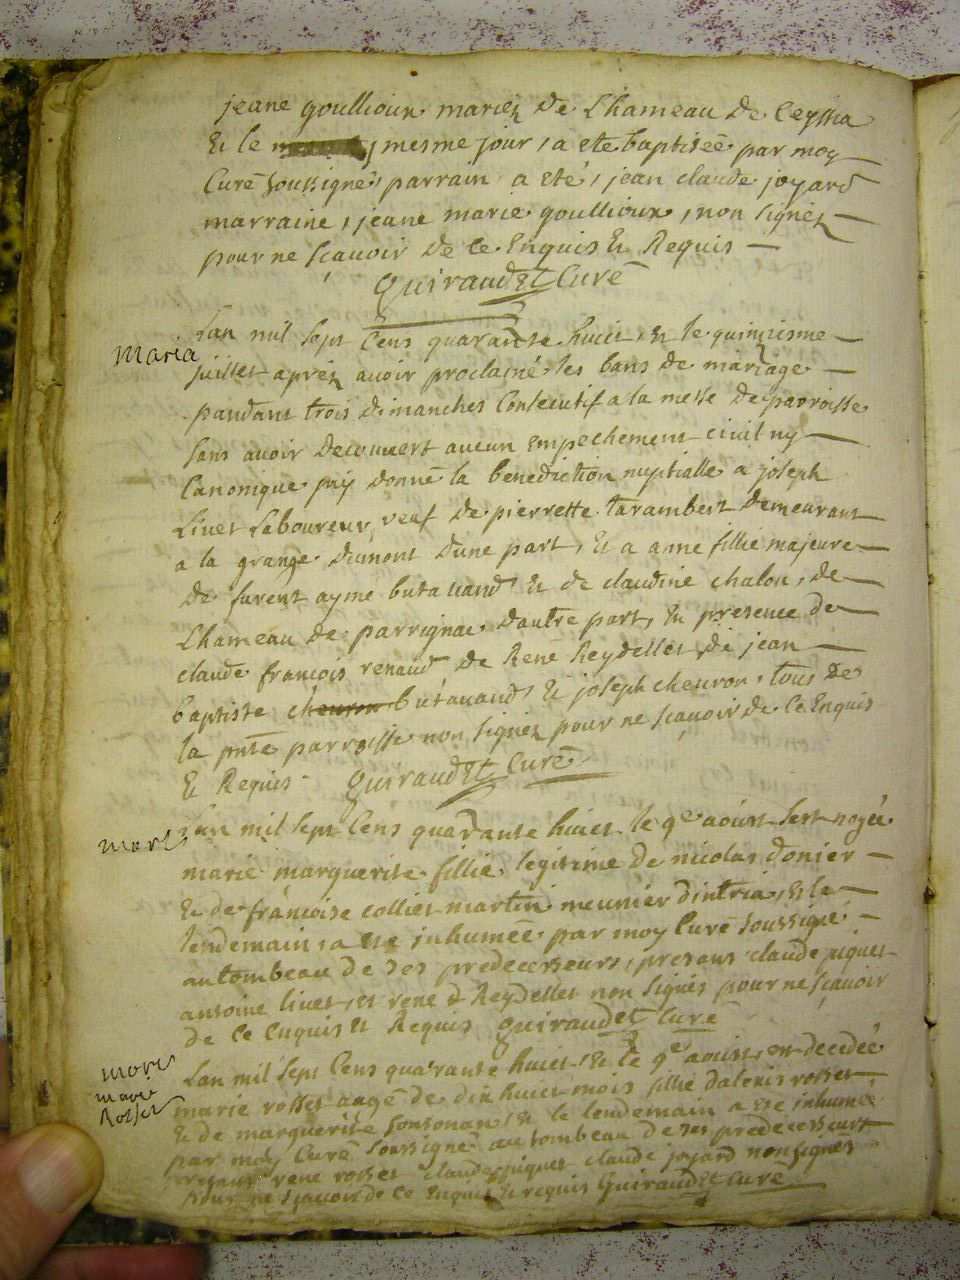 jeane goullioux mariez de Lhameau de Ceyssia
Et le mesme jour, a ete baptisée par moy
Curé soussigné, parrain, a eté, jean claude joyard
marraine, jeane marie goullioux, non signez
pour ne sçavoir de ce Enquis Et Requis
Guiraudet Curé
Lan mil sept Cens quarante huict, et le quinzisme
maria
juillet aprez avoir proclamé les bans de mariage
pandant trois dimanches Consecutif a la messe de parroisse
sans avoir decouvert aucun empechement civil ny
Canonique jay donné la benediction nuptialle a joseph
Livet Laboureur, veuf de pierrette tarambert demeurant
a la grange dumont dune part, Et a ame fillie majeure
de furent ayme butavand Et de claudine chalon, de
Lhameau de parrignac dautre part, En presence de
claude françois renaud de René Reydellet de jean
baptiste chevron butavand Et joseph chevron, tous de
la pnte parroisse non signez pour ne sçavoir de Ce Enquis
Et Requis Guiraudet Curé
Lan mil sept Cens quarante huict le 9e aoust sest noyée
mort
marie marguerite fillie legitime de nicolas donier
Et de françoise collier martin meunier dintria, Et le
lendemain, a ete inhumée par moy Curé soussigné
au tombeau de ses predecesseurs, presans claude piquet
antoine livet, et rene Reydellet non signés pour ne sçavoir
de Ce Enquis Et Requis Guiraudet Curé
Lan mil sept Cens quarante huict Et le 9e aoust, est decedée
mort
marie
Rosset
marie rosset aagé de dix huict mois fillie dalexis rosset
Et de marguerite sonsonan, Et le lendemain a ete inhumée
par moy Curé soussigné au tombeau de ses predecesseurs
presans rene rosset claude piquet claude joyard non signés
pour ne sçavoir de Ce enquis Et requis Guiraudet Curé